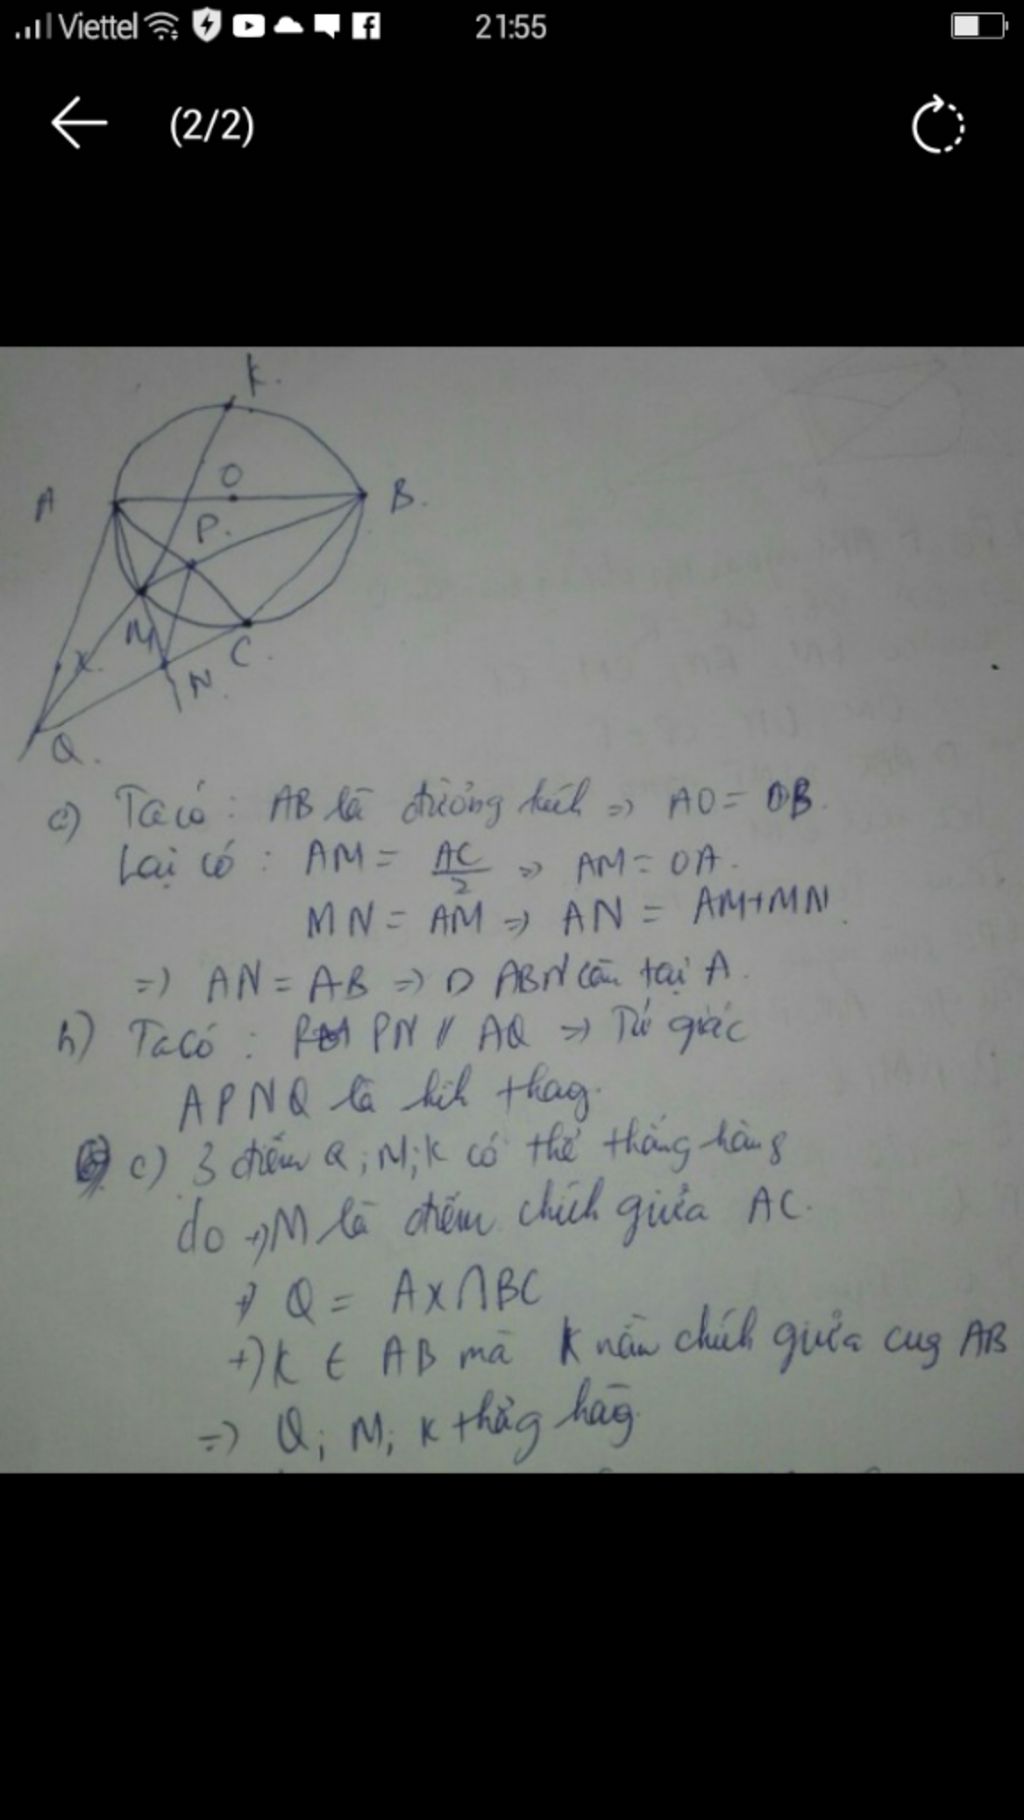 Viettel 21:55
(2/2)
K.
A
O
B.
P.
M
C.
x
N.
Q.
a) Ta có : AB là đường kích => AO = OB.
Lại có : AM = AC/2 => AM = OA.
MN = AM => AN = AM+MN
=> AN = AB => D ABN cân tại A.
b) Ta có : PN // AQ => Tứ giác
APNQ là hih thag.
c) 3 điểm Q ; M ; K có thể thẳng hàng
do +) M là điểm chích giữa AC.
+) Q = Ax ∩ BC
+) K ∈ AB mà K nằm chích giữa cug AB
=> Q ; M ; K thẳg hàg.